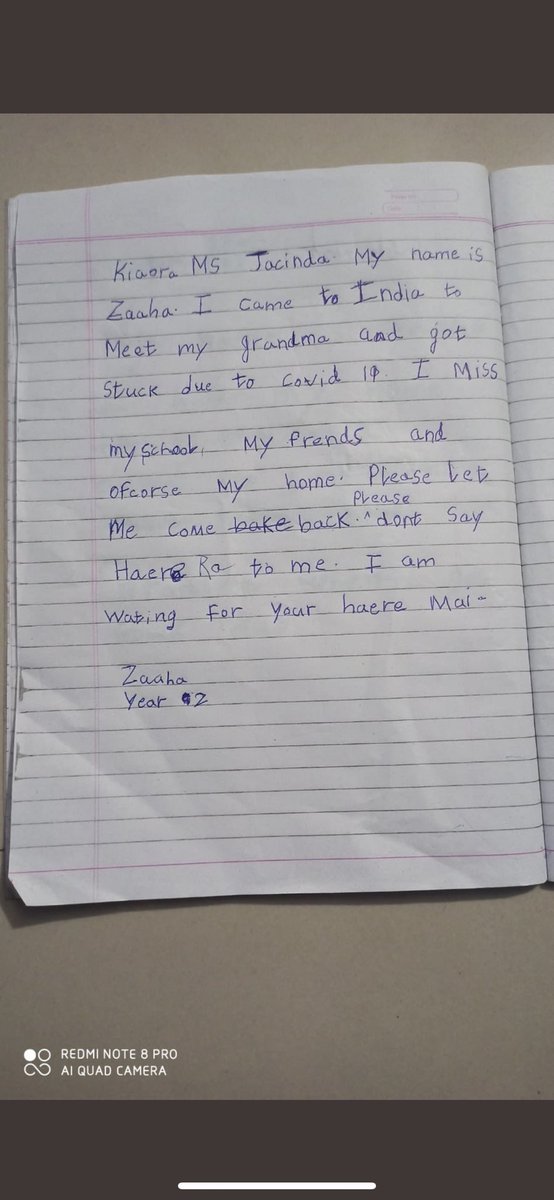 Kiaora Ms Jacinda. My name is
Zaaha. I came to India to
Meet my grandma and got
Stuck due to Covid 19. I Miss
my School, My frends and
ofcorse My home. Please Let
Me Come bake back. ^ Please dont Say
Haere Ra to me. I am
Wating For Your haere Mai-
Zaaha
Year 2
REDMI NOTE 8 PRO
AI QUAD CAMERA